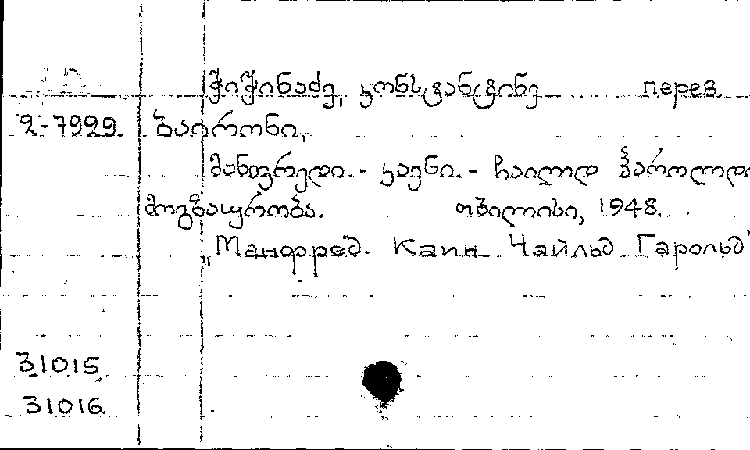 ჭიჭინაძე, კონსტანტინე перев.
2-7929. ბაირონი,
მანფრედი. - კაენი. - ჩაილდ ჰაროლდი
მოგზაურობა. თბილისი, 1948.
„Манфред. Каин Чайльд Гарольд"
31015
31016